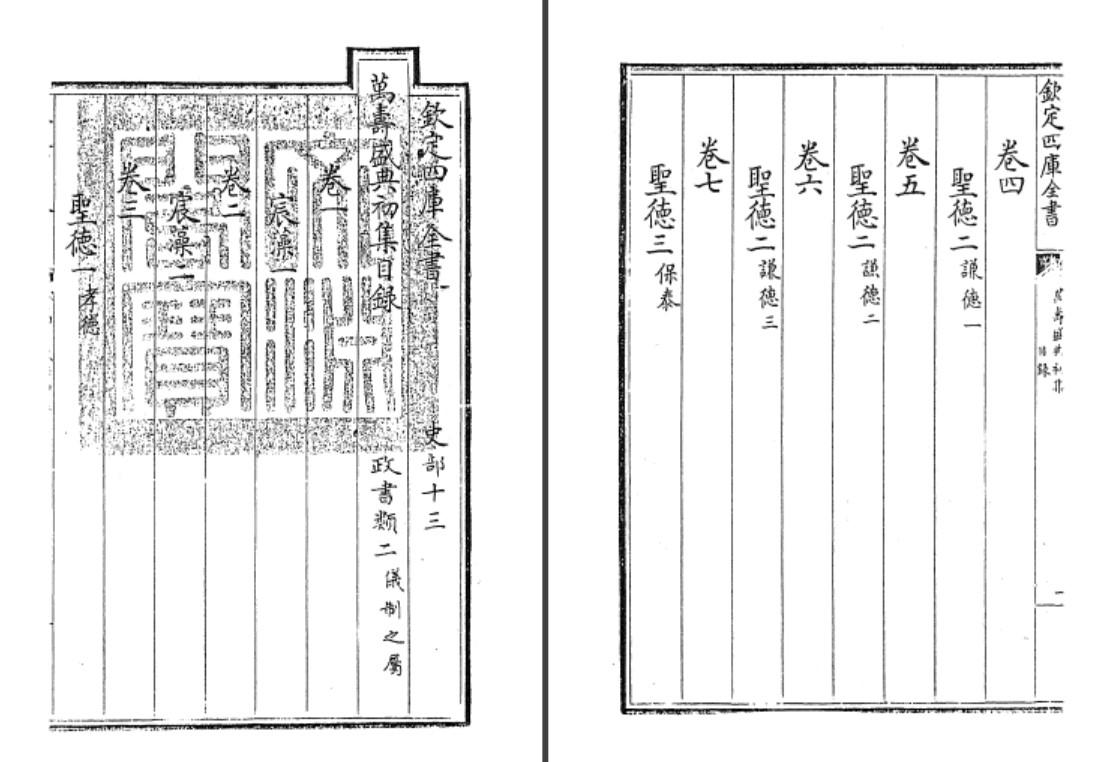 欽定四庫全書 史部十三
萬壽盛典初集目録 政書類二 儀制之屬
卷一
宸藻一
卷二
宸藻二
卷三
聖徳一 孝徳
文淵閣寶
欽定四庫全書
萬壽盛典初集
目録
一
卷四
聖徳二 謙徳一
卷五
聖徳二 謙徳二
卷六
聖徳二 謙徳三
卷七
聖徳三 保泰